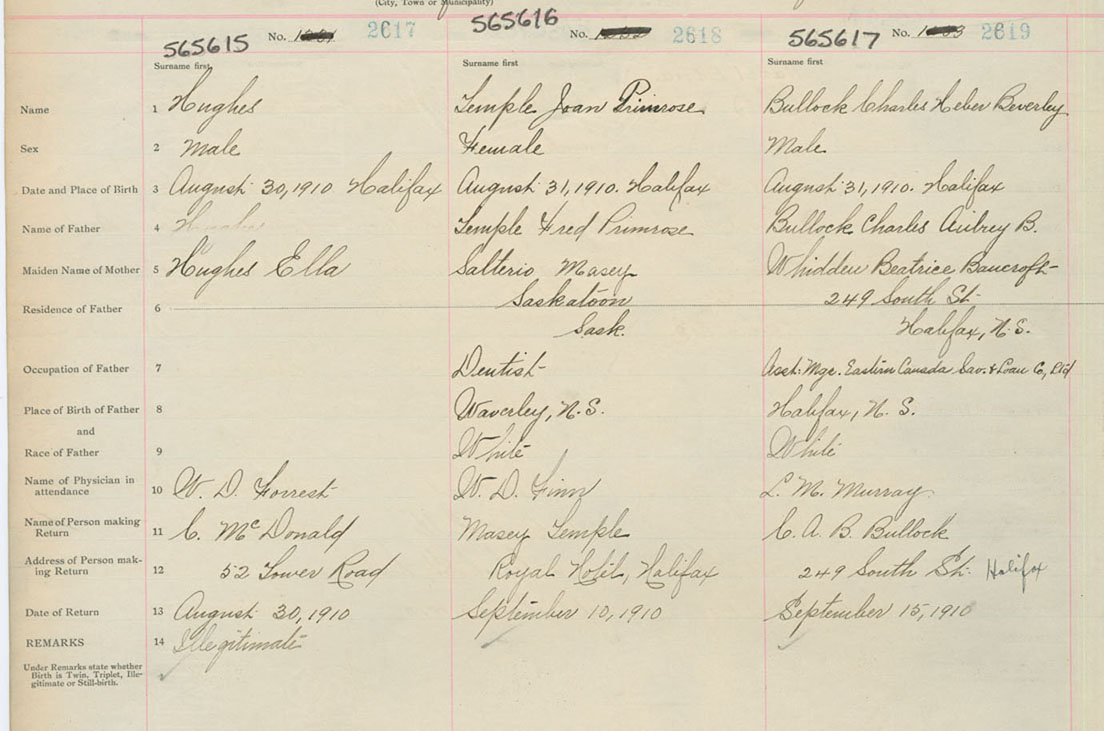 (City, Town or Municipality)
565615 No. 2617 565616 No. 2618 565617 No. 2619
Surname first Surname first Surname first
Name 1 Hughes Temple Joan Primrose Bullock Charles Heber Beverley
Sex 2 Male Female Male
Date and Place of Birth 3 August 30, 1910 Halifax August 31, 1910. Halifax August 31, 1910. Halifax
Name of Father 4 Temple Fred Primrose Bullock Charles Aubrey B.
Maiden Name of Mother 5 Hughes Ella Salterio Masey Whidden Beatrice Bancroft
Residence of Father 6 Saskatoon 249 South St.
Sask. Halifax, N.S.
Occupation of Father 7 Dentist Asst. Mgr. Eastern Canada Sav. & Loan Co, Ltd
Place of Birth of Father 8 Waverley, N.S. Halifax, N.S.
and
Race of Father 9 White White
Name of Physician in attendance 10 W. D. Forrest W. D. Finn L. M. Murray
Name of Person making Return 11 C. McDonald Masey Temple C. A. B. Bullock
Address of Person making Return 12 52 Tower Road Royal Hotel, Halifax 249 South St. Halifax
Date of Return 13 August 30, 1910 September 10, 1910 September 15, 1910
REMARKS 14 Illegitimate
Under Remarks state whether
Birth is Twin, Triplet, Ille-
gitimate or Still-birth.